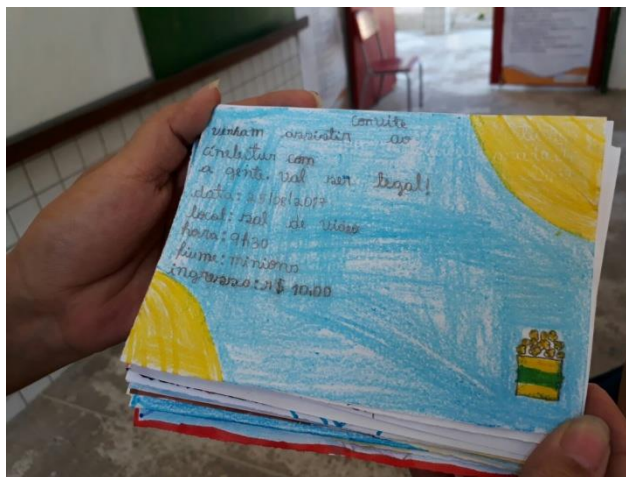 Convite
venham assistir ao
cineleitur com
a gente. vai ser legal!
data: 25/08/2017
local: sal de vídeo
hora: 9h30
fiume: minions
ingresso: R$ 10,00